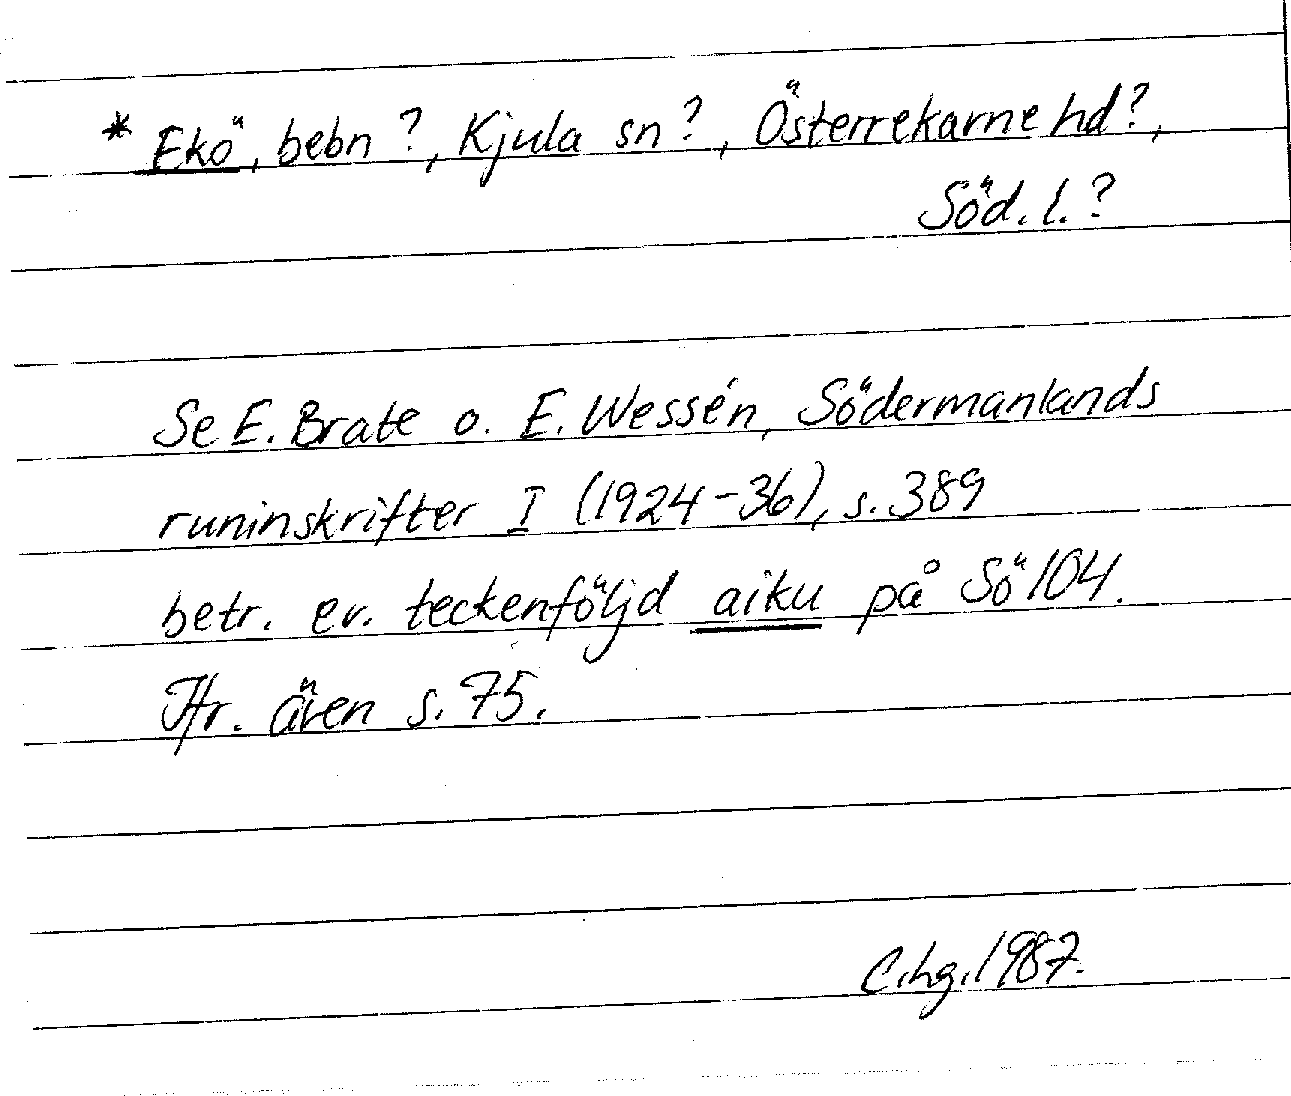 * Ekö, bebn?, Kjula sn?, Österrekarne hd?,
Söd. l.?
Se E. Brate o. E. Wessén, Södermanlands
runinskrifter I (1924-36), s. 389
betr. ev. teckenföljd aiku på Sö 104.
Jfr. även s. 75.
C.hg. 1987.